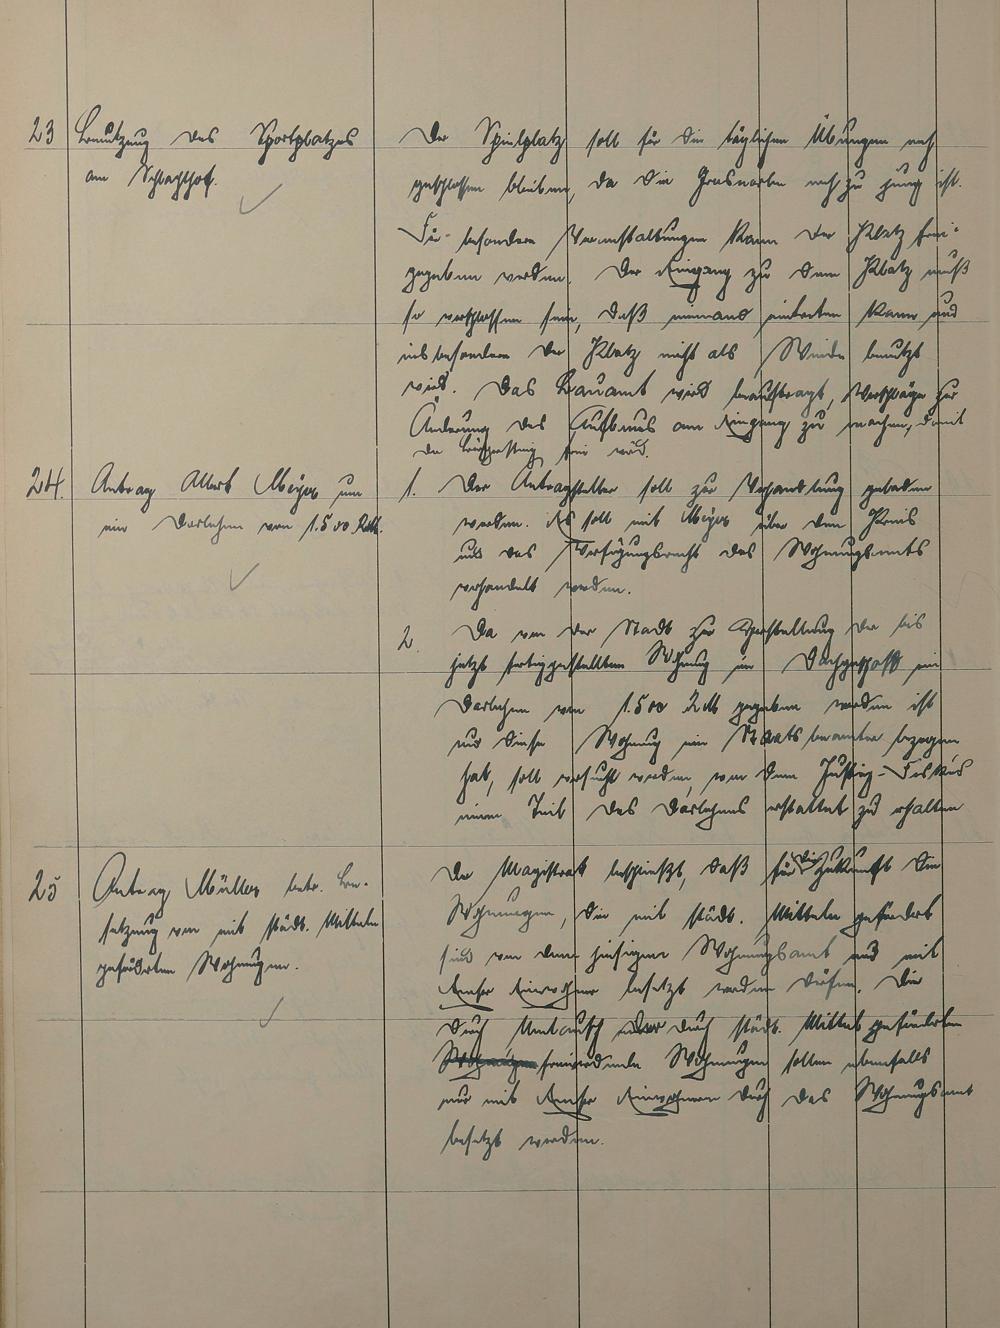 23 Benutzung des Sportplatzes
am Schlachthof.
Der Spielplatz soll für die täglichen Übungen noch
geschlossen bleiben, da die Grasnarbe noch zu jung ist.
Für besondere Veranstaltungen kann der Platz frei-
gegeben werden. Der Eingang zu dem Platz muß
so verschlossen sein, daß niemand eintreten kann und
insbesondere der Platz nicht als Weide benutzt
wird. Das Bauamt wird beauftragt, Vorschläge zur
Änderung des Aufbaus am Eingang zu machen, damit
der frei wird.
24. Antrag Albert Meyer um
ein Darlehen von 1.500 RM.
1. Der Antragsteller soll zur Verhandlung geladen
werden. Es soll mit Meyer über den Preis
und das Verfügungsrecht des Wohnungsamts
verhandelt werden.
2. Da von der Stadt zur Herstellung der bis
jetzt fertiggestellten Wohnung im Dachgeschoß ein
Darlehen von 1.500 RM gegeben worden ist
und diese Wohnung ein Staatsbeamter bezogen
hat, soll versucht werden, von dem Justiz-Fiskus
einen Teil des Darlehens erstattet zu erhalten
25 Antrag Müller betr. Be-
setzung von mit städt. Mitteln
geförderten Wohnungen.
Der Magistrat beschließt, daß für die Zukunft die
Wohnungen, die mit städt. Mitteln gefördert
sind von dem hiesigen Wohnungsamt nur mit
Einwohner besetzt werden dürfen. Die
durch Umtausch oder durch städt. Mittel geförderten
Wohnungen freiwerdende Wohnungen sollen ebenfalls
nur mit Einwohnern durch das Wohnungsamt
besetzt werden.